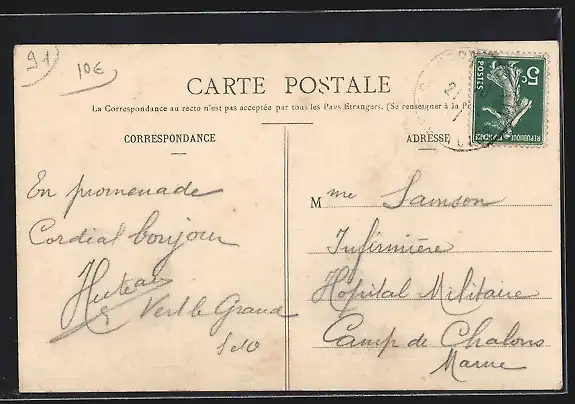 91
10€
CARTE POSTALE
La Correspondance au recto n'est pas acceptée par tous les Pays Etrangers. (Se renseigner à la
CORRESPONDANCE
ADRESSE
5c
POSTES
REPUBLIQUE FRANÇAISE
En promenade
Cordial bonjour
Huteau
Vert le Grand
S et O
Mme Samson
Infirmière
Hopital Militaire
Camp de Chalons
Marne